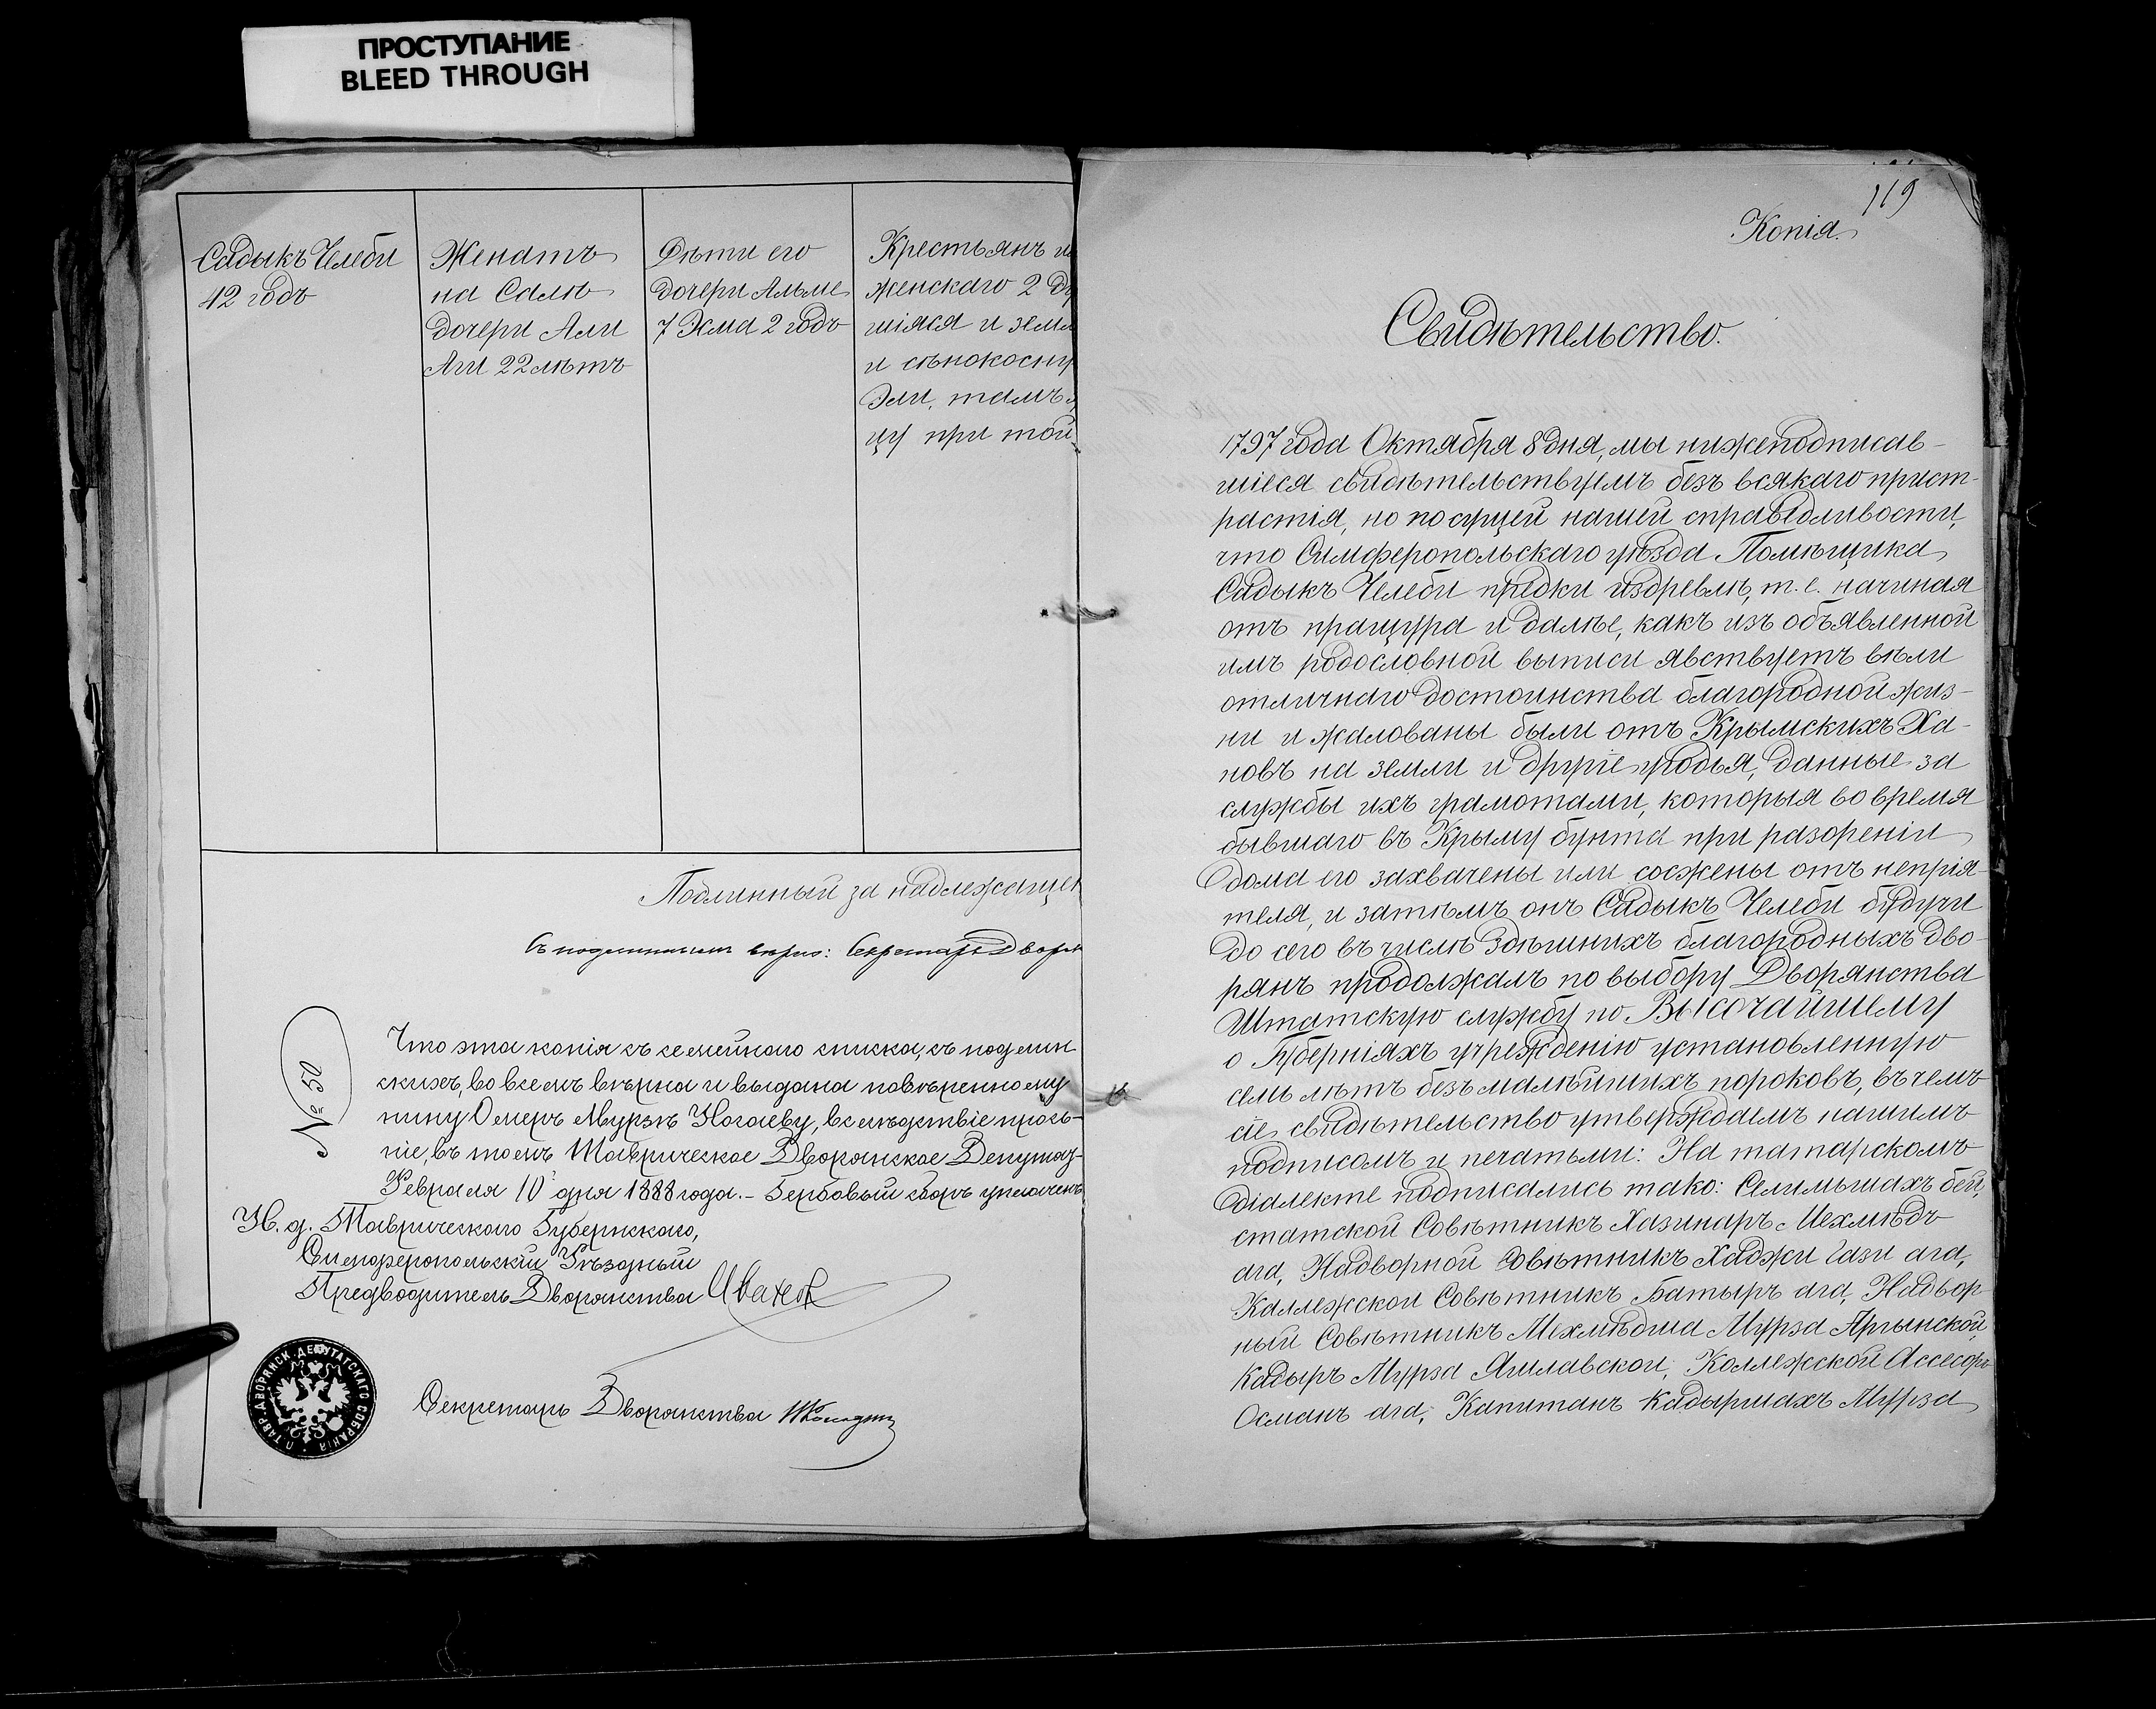 ПРОСТУПАНИЕ
BLEED THROUGH
Садыкъ Челеби
42 годъ
Женатъ
на Салѣ
дочери Али
Аги 22 лѣтъ
Дѣти его
дочери Альме
7 Эма 2 годъ
Крестьянъ
женскаго 2
шіяся и земл
и сѣнокосну
Эли, тамъ
цу при той
Подлинный за надлежаще
Съ подлиннымъ вѣрно: Секретарь Двор
№ 50
Что эта копія съ семейнаго списка, съ подлин
скихъ, во всемъ вѣрна и выдана повѣренному
нину Омеръ Мурзѣ Ногаеву, вслѣдствіе прось-
ніе, въ томъ Таврическое Дворянское Депутат-
Февраля 10 дня 1888 года. – Гербовый сборъ уплаченъ
И. д. Таврическаго Губернскаго,
Симферопольскій Уѣздный
Предводитель Дворянства
ТАВР. ДВОРЯНСК. ДЕПУТАТСКАГО СОБРАНІЯ
Секретарь Дворянства
119
Копія.
Свидѣтельство.
1797 года Октября 8 дня, мы нижеподписав-
шіеся свидѣтельствуемъ безъ всякаго прист-
растія, но по сущей нашей справедливости,
что Симферопольскаго уѣзда Помѣщика
Садыкъ Челеби предки издревлѣ, т. е. начиная
отъ пращура и далѣе, какъ изъ объявленной
имъ родословной выписи явствуетъ вѣли
отличнаго достоинства благородной жиз-
ни и жалованы были отъ Крымскихъ Ха-
новъ на земли и другіе угодья, данные за
службы ихъ грамотами, которыя во время
бывшаго въ Крыму бунта при разореніи
дома его захвачены или сожжены отъ непрія-
теля, и затѣмъ онъ Садыкъ Челеби будучи
до сего въ числѣ здѣшнихъ благородныхъ дво-
рянъ продолжалъ по выбору Дворянства
Штатскую службу по Высочайшему
о Губерніяхъ учрежденію установленную
семь лѣтъ безъ малѣйшихъ пороковъ, въ чемъ
сіе свидѣтельство утверждаемъ нашимъ
подписомъ и печатьми: На татарскомъ
діалекте подписались тако: Селимшахъ бей,
статской Совѣтникъ Хазинаръ Мехмѣдъ
ага, Надворной Совѣтникъ Хаджи Гази ага,
Каллежской Совѣтникъ Батыръ ага, Надвор-
ный Совѣтникъ Мехмѣдша Мурза Аргынской,
Кадыръ Мурза Яшлавской, Коллежской Ассесоръ
Османъ ага, Капитанъ Кадыршахъ Мурза